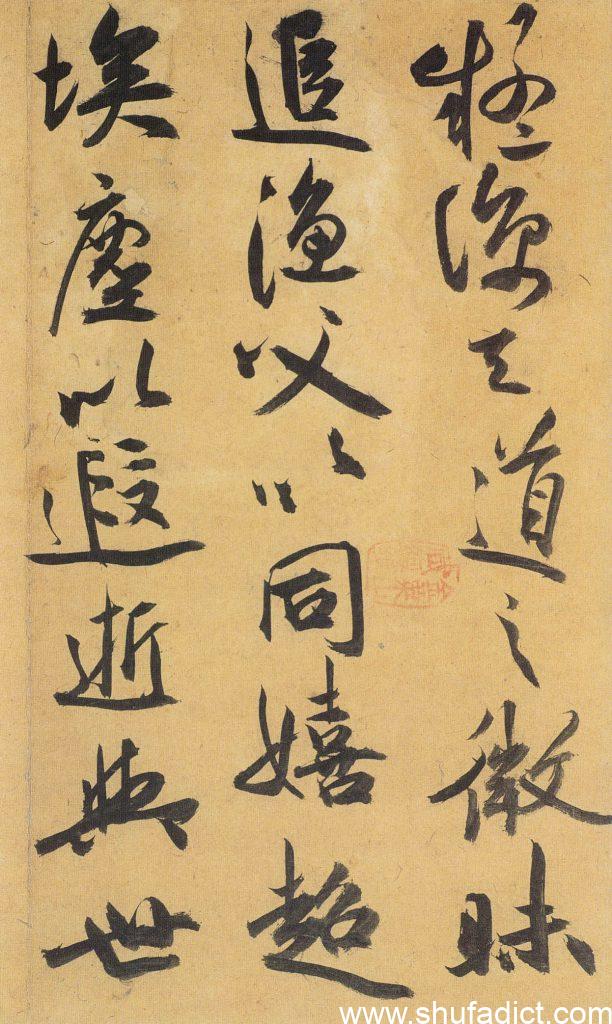 疑諒天道之微昧
追漁父以同嬉超
埃塵以遐逝與世
www.shufadict.com